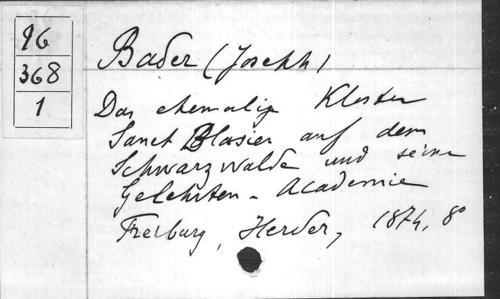 96
368
1
Bader (Joseph)
Das ehemalige Kloster
Sanct Blasien auf dem
Schwarzwalde und seine
Gelehrten-Academie
Freiburg, Herder, 1874, 8°